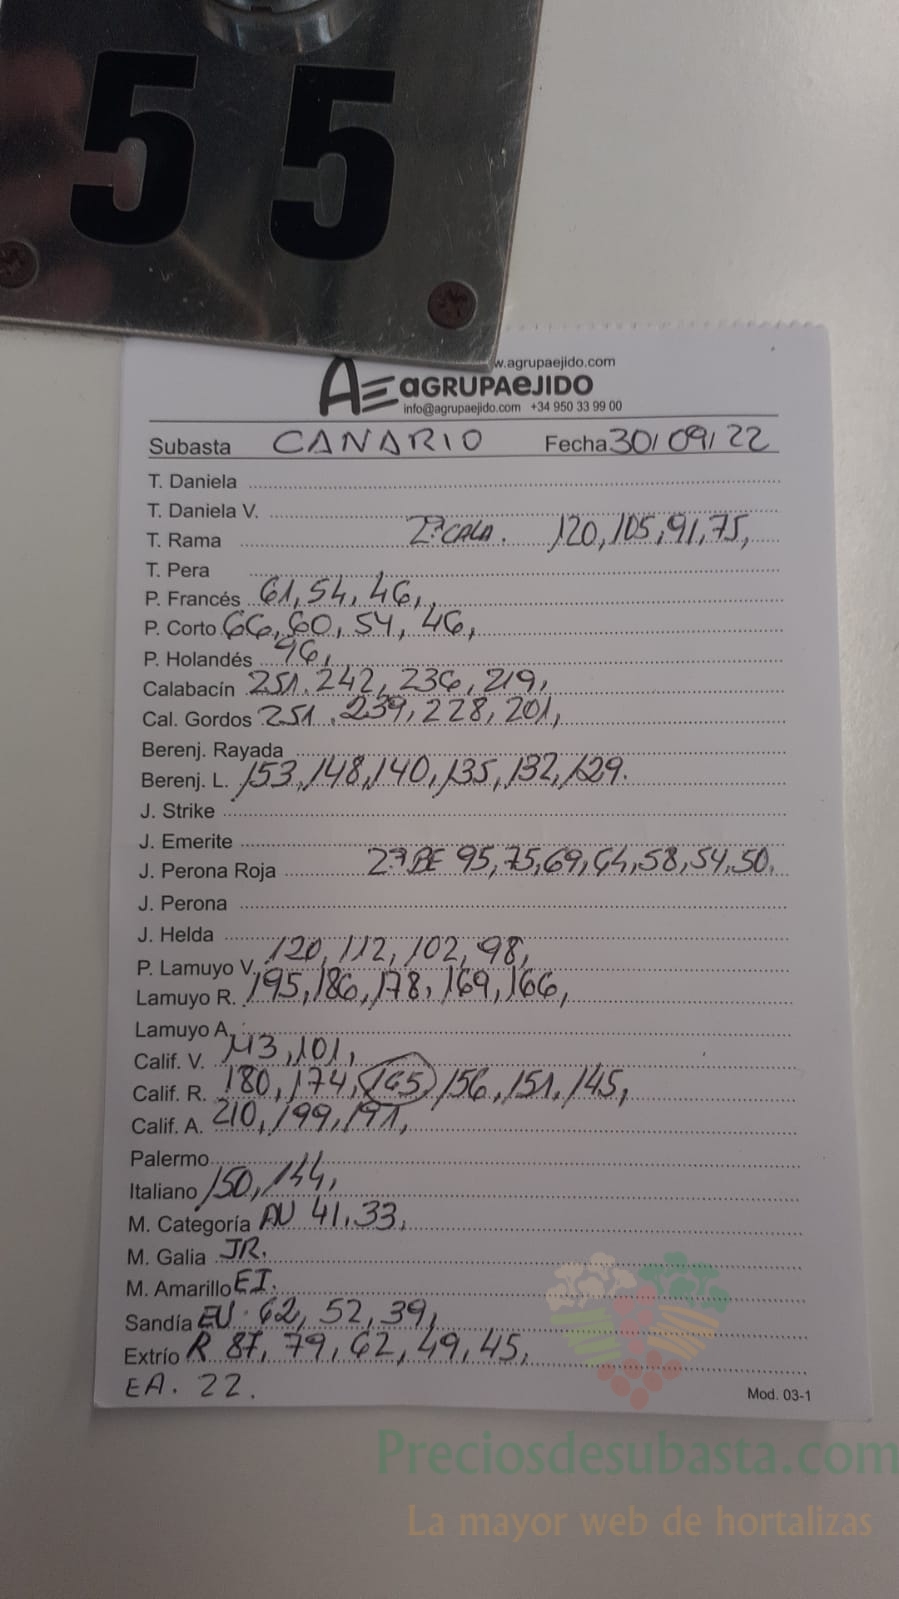 55
w.agrupaejido.com
AE aGRUPAeJIDO
info@agrupaejido.com +34 950 33 99 00
Subasta CANARIO Fecha 30/09/22
T. Daniela
T. Daniela V.
T. Rama 2ª CALA. 120, 105, 91, 75,
T. Pera
P. Francés 61, 54, 46,
P. Corto 66, 60, 54, 46,
P. Holandés 96,
Calabacín 251. 242, 236, 219,
Cal. Gordos 251. 239, 228, 201,
Berenj. Rayada
Berenj. L. 153, 148, 140, 135, 132, 129.
J. Strike
J. Emerite
J. Perona Roja 2ª BE 95, 75, 69, 64, 58, 54, 50,
J. Perona
J. Helda
P. Lamuyo V. 120, 112, 102, 98,
Lamuyo R. 195, 186, 178, 169, 166,
Lamuyo A.
Calif. V. 113, 101,
Calif. R. 180, 174, 165, 156, 151, 145,
Calif. A. 210, 199, 191,
Palermo
Italiano 150, 144,
M. Categoría AU 41, 33,
M. Galia JR.
M. Amarillo EI.
Sandía EU. 62, 52, 39,
Extrío R 87, 79, 62, 49, 45,
EA. 22.
Mod. 03-1
Preciosdesubasta.com
La mayor web de hortalizas